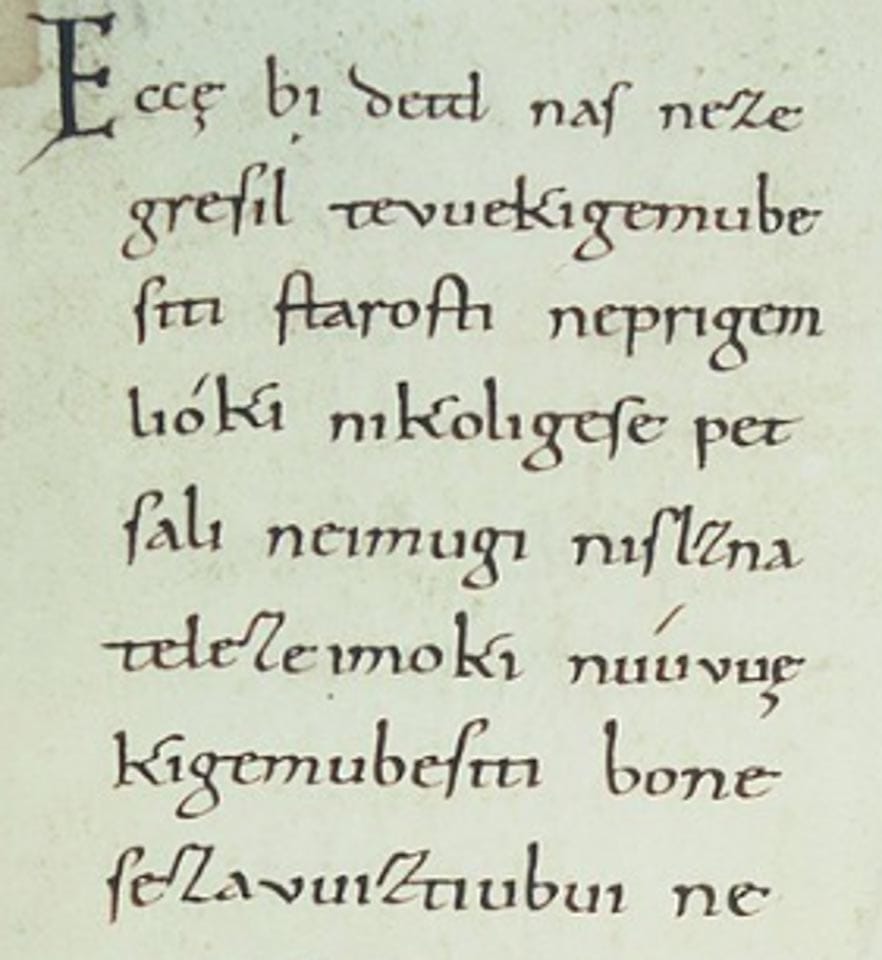 Eccę bi detd naſ neze
greſil tevuekigemube
ſiti ſtaroſti neprigem
lióki nikoligeſe pet
ſali neimugi niſlzna
teleze imoki nuúvuę
kigemubeſiti bone
ſezavuiztiubui ne